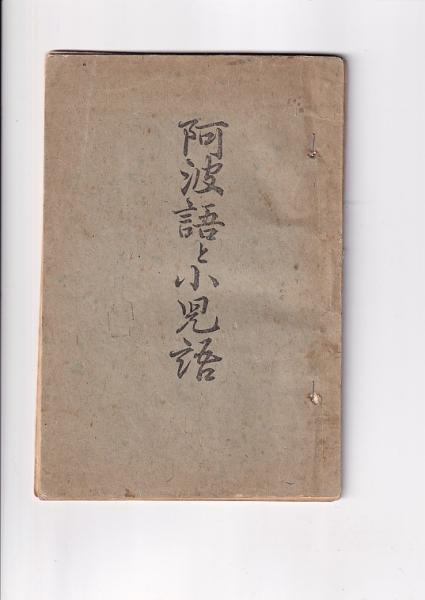 阿波語と小児語